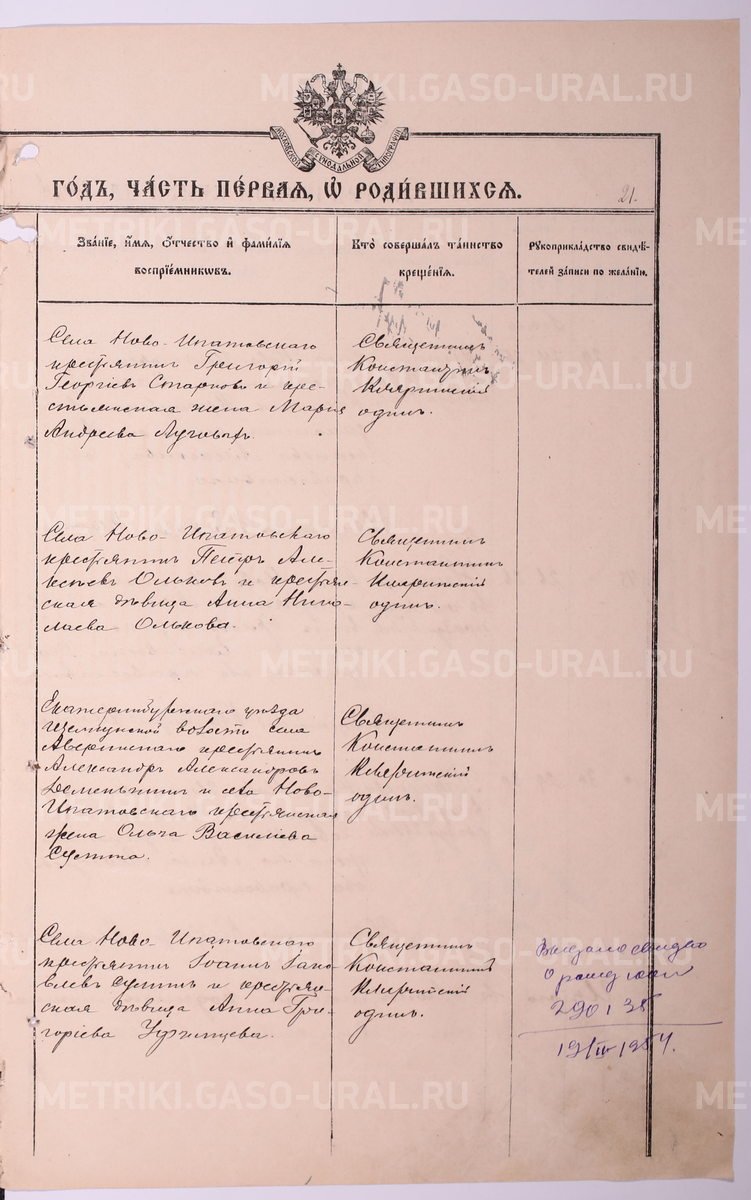 METRIKI.GASO-URAL.RU
МОСКОВСКОЙ СѴНОДАЛЬНОЙ ТИПОГРАФІИ
ГО́ДЪ, ЧА́СТЬ ПЕ́РВАЯ, Ѡ҆ РОДИ́ВШИХСЯ.
21.
Зва́нїе, и҆́мя, ѻ҆́тчество и҆ фами́лїя
воспрїе́мникѡвъ.
Кто̀ соверша́лъ та́инство
креще́нїя.
Рукоприкла́дство свидѣ́-
телей за́писи по жела́нїю.
Села Ново-Ипатовскаго
крестьянинъ Григорій
Георгіев и кре-
стьянская жена Марія
Андреева Луговыхъ.
Священникъ
Константинъ
одинъ.
Села Ново-Ипатовскаго
крестьянинъ Петръ Але-
ксѣевъ Ольковъ и крестьян-
ская дѣвица Анна Нико-
лаева Олькова.
Священникъ
Константинъ
одинъ.
Екатеринбургскаго уѣзда
волости села
Аверинскаго крестьянинъ
Александръ Александровъ
Деменьшинъ и села Ново-
Ипатовскаго крестьянская
жена Ольга Василіева
Священникъ
Константинъ
одинъ.
Села Ново-Ипатовскаго
крестьянинъ Іоаннъ Іако-
влевъ и крестьян-
ская дѣвица Анна Гри-
горіева Уфимцева.
Священникъ
Константинъ
одинъ.
Выдано свидет
о рожд
19/IV 1954.